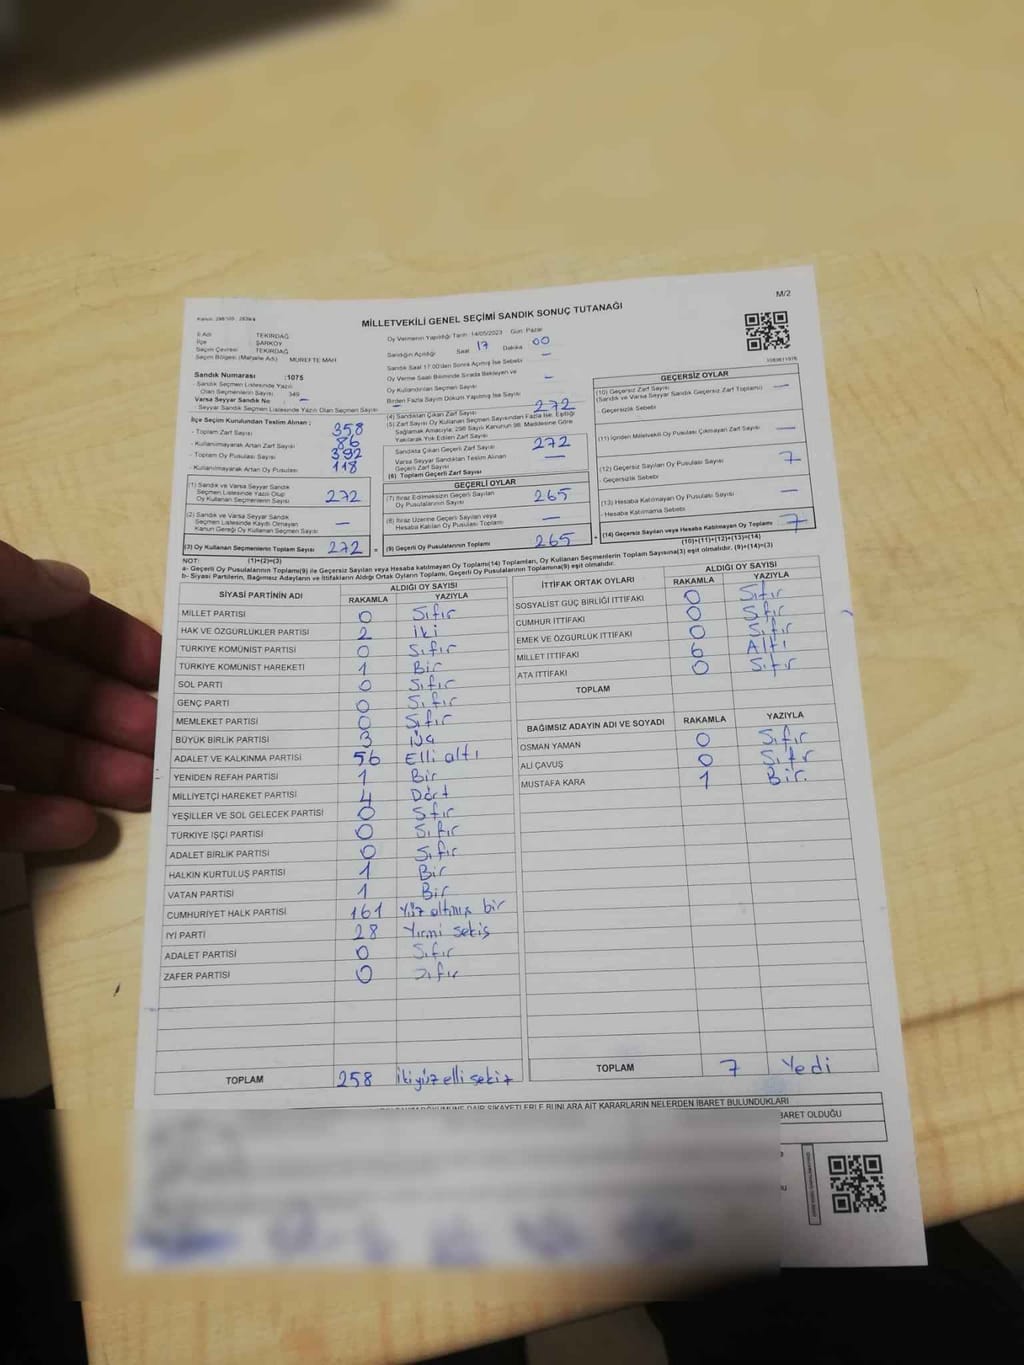 M/2
MİLLETVEKİLİ GENEL SEÇİMİ SANDIK SONUÇ TUTANAĞI
İl Adı TEKİRDAĞ
İlçe ŞARKÖY
Seçim Çevresi TEKİRDAĞ
Seçim Bölgesi (Mahalle Adı) MÜREFTE MAH
Sandık Numarası :1075
- Sandık Seçmen Listesinde Yazılı Olan Seçmenlerin Sayısı 349
Varsa Seyyar Sandık No : –
- Seyyar Sandık Seçmen Listesinde Yazılı Olan Seçmen Sayısı
İlçe Seçim Kurulundan Teslim Alınan ;
- Toplam Zarf Sayısı 358
- Kullanılmayarak Artan Zarf Sayısı 86
- Toplam Oy Pusulası Sayısı 392
- Kullanılmayarak Artan Oy Pusulası 118
(1) Sandık ve Varsa Seyyar Sandık Seçmen Listesinde Yazılı Olup Oy Kullanan Seçmenlerin Sayısı 272
(2) Sandık ve Varsa Seyyar Sandık Seçmen Listesinde Kayıtlı Olmayan Kanun Gereği Oy Kullanan Seçmen Sayısı –
(3) Oy Kullanan Seçmenlerin Toplam Sayısı 272
(1)+(2)=(3)
Oy Vermenin Yapıldığı Tarih: 14/05/2023 Gün: Pazar
Sandığın Açıldığı Saat 17 Dakika 00
Sandık Saat 17:00'den Sonra Açılmış İse Sebebi –
Oy Verme Saati Bitiminde Sırada Bekleyen ve Oy Kullandırılan Seçmen Sayısı –
Birden Fazla Sayım Döküm Yapılmış İse Sayısı –
(4) Sandıktan Çıkan Zarf Sayısı 272
(5) Zarf Sayısı Oy Kullanan Seçmen Sayısından Fazla İse, Eşitliği Sağlamak Amacıyla, 298 Sayılı Kanunun 98. Maddesine Göre Yakılarak Yok Edilen Zarf Sayısı
Sandıkta Çıkan Geçerli Zarf Sayısı 272
Varsa Seyyar Sandıktan Teslim Alınan Geçerli Zarf Sayısı –
(6) Toplam Geçerli Zarf Sayısı
GEÇERLİ OYLAR
(7) İtiraz Edilmeksizin Geçerli Sayılan Oy Pusulalarının Sayısı 265
(8) İtiraz Üzerine Geçerli Sayılan veya Hesaba Katılan Oy Pusulası Toplamı –
(9) Geçerli Oy Pusulalarının Toplamı 265
GEÇERSİZ OYLAR
(10) Geçersiz Zarf Sayısı (Sandık ve Varsa Seyyar Sandık Geçersiz Zarf Toplamı) –
- Geçersizlik Sebebi
(11) İçinden Milletvekili Oy Pusulası Çıkmayan Zarf Sayısı –
(12) Geçersiz Sayılan Oy Pusulası Sayısı 7
- Geçersizlik Sebebi
(13) Hesaba Katılmayan Oy Pusulası Sayısı –
- Hesaba Katılmama Sebebi
(14) Geçersiz Sayılan veya Hesaba Katılmayan Oy Toplamı 7
(10)+(11)+(12)+(13)=(14)
NOT:
a- Geçerli Oy Pusulalarının Toplamı(9) ile Geçersiz Sayılan veya Hesaba Katılmayan Oy Toplamı(14) Toplamları, Oy Kullanan Seçmenlerin Toplam Sayısına(3) eşit olmalıdır. (9)+(14)=(3)
b- Siyasi Partilerin, Bağımsız Adayların ve İttifakların Aldığı Ortak Oyların Toplamı, Geçerli Oy Pusulalarının Toplamına(9) eşit olmalıdır.
SİYASİ PARTİNİN ADI ALDIĞI OY SAYISI
RAKAMLA YAZIYLA
MİLLET PARTİSİ 0 Sıfır
HAK VE ÖZGÜRLÜKLER PARTİSİ 2 iki
TÜRKİYE KOMÜNİST PARTİSİ 0 Sıfır
TÜRKİYE KOMÜNİST HAREKETİ 1 Bir
SOL PARTİ 0 Sıfır
GENÇ PARTİ 0 Sıfır
MEMLEKET PARTİSİ 0 Sıfır
BÜYÜK BİRLİK PARTİSİ 3 Üç
ADALET VE KALKINMA PARTİSİ 56 Elli altı
YENİDEN REFAH PARTİSİ 1 Bir
MİLLİYETÇİ HAREKET PARTİSİ 4 Dört
YEŞİLLER VE SOL GELECEK PARTİSİ 0 Sıfır
TÜRKİYE İŞÇİ PARTİSİ 0 Sıfır
ADALET BİRLİK PARTİSİ 0 Sıfır
HALKIN KURTULUŞ PARTİSİ 1 Bir
VATAN PARTİSİ 1 Bir
CUMHURİYET HALK PARTİSİ 161 Yüz altmış bir
İYİ PARTİ 28 Yirmi sekiz
ADALET PARTİSİ 0 Sıfır
ZAFER PARTİSİ 0 Sıfır
TOPLAM 258 ikiyüz elli sekiz
İTTİFAK ORTAK OYLARI ALDIĞI OY SAYISI
RAKAMLA YAZIYLA
SOSYALİST GÜÇ BİRLİĞİ İTTİFAKI 0 Sıfır
CUMHUR İTTİFAKI 0 Sıfır
EMEK VE ÖZGÜRLÜK İTTİFAKI 0 Sıfır
MİLLET İTTİFAKI 6 Altı
ATA İTTİFAKI 0 Sıfır
TOPLAM
BAĞIMSIZ ADAYIN ADI VE SOYADI RAKAMLA YAZIYLA
OSMAN YAMAN 0 Sıfır
ALİ ÇAVUŞ 0 Sıfır
MUSTAFA KARA 1 Bir.
TOPLAM 7 Yedi
DAİR ŞİKAYETLERLE BUNLARA AİT KARARLARIN NELERDEN İBARET BULUNDUKLARI
İBARET OLDUĞU